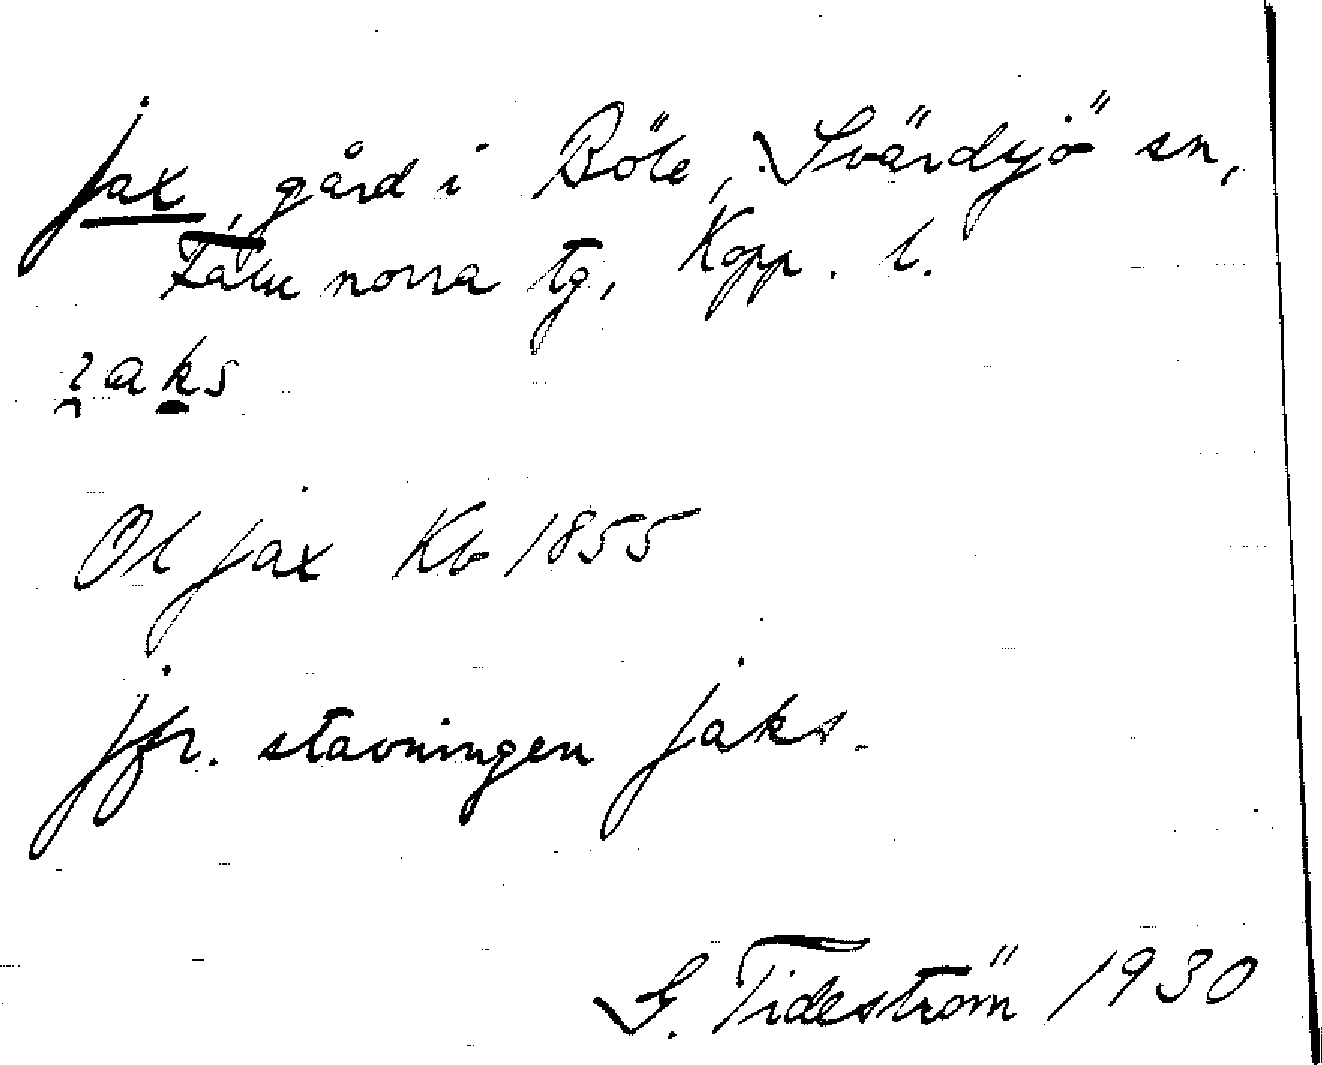 Jax, gård i Böle, Svärdsjö sn,
Falu norra tg, Kopp. l.
i̯aks
Ol Jax Kb 1855
Jfr. stavningen Jaks.
G. Tideström 1930